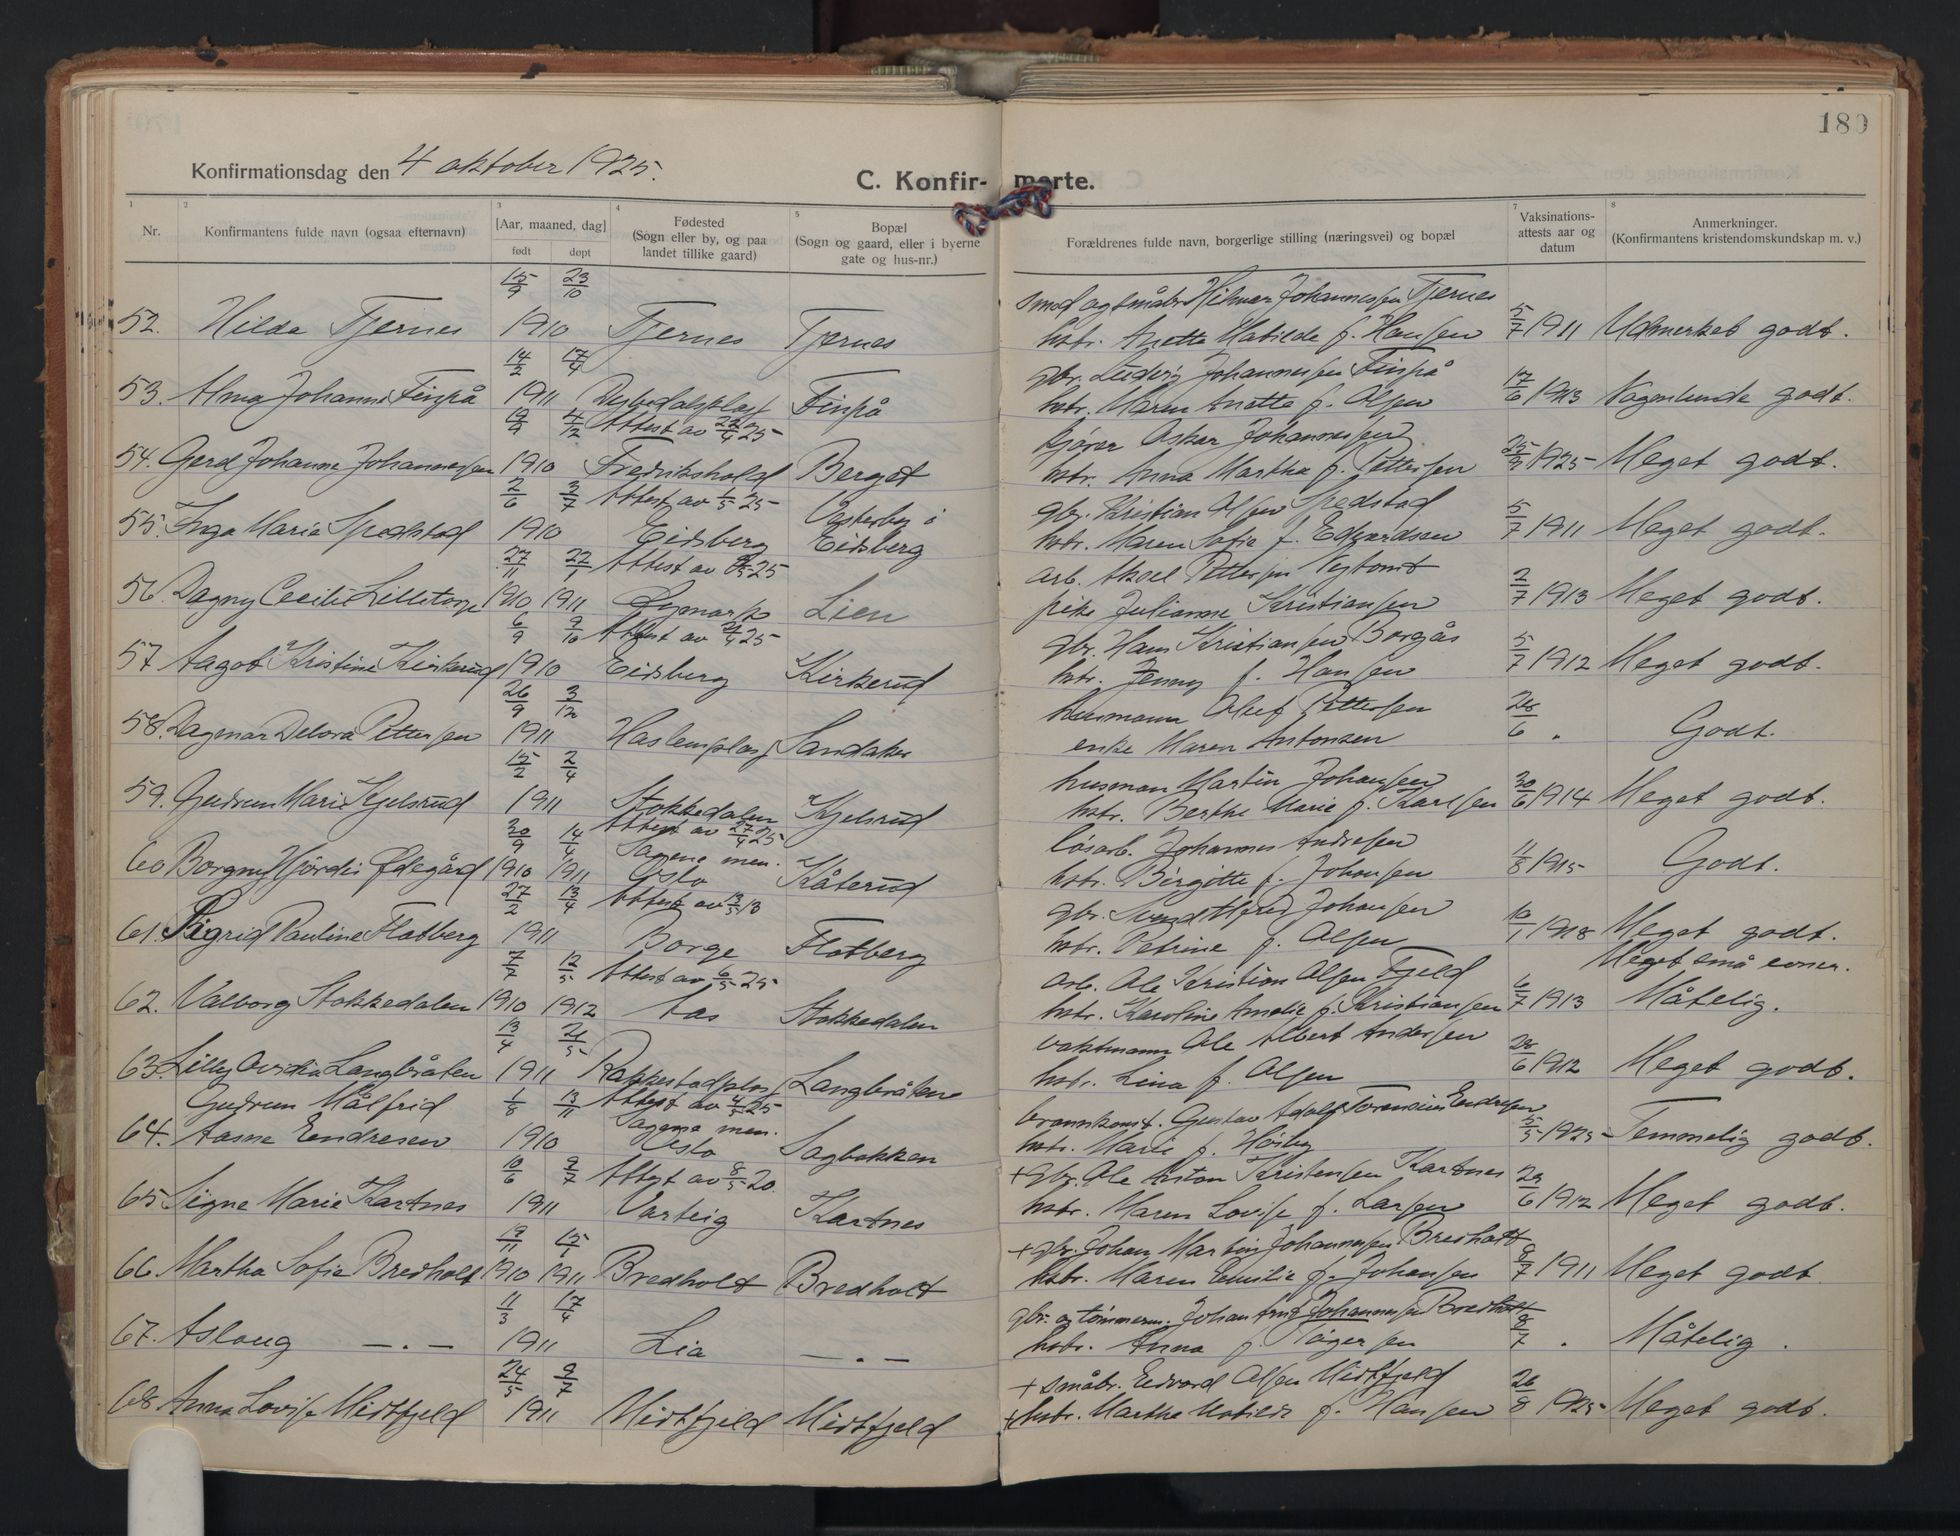 180
Konfirmationsdag den 4 oktober 1925.
C. Konfir- merte.
1 2 3 4 5 7 8
Nr. Konfirmantens fulde navn (ogsaa efternavn) [Aar, maaned, dag] født døpt Fødested (Sogn eller by, og paa landet tillike gaard) Bopæl (Sogn og gaard, eller i byerne gate og hus-nr.) Forældrenes fulde navn, borgerlige stilling (næringsvei) og bopæl Vaksinations-attests aar og datum Anmerkninger. (Konfirmantens kristendomskundskap m. v.)
15/9 23/10 smed og småbr. Hilmar Johannessen Tjernes
52. Hilda Tjernes 1910 Tjernes Tjernes hstr. Anette Matilde f. Hansen 5/7 1911 Udmerket godt.
14/2 17/4 gbr. Ludvig Johannessen Finså
53. Alma Johanne Finså 1911 Finså hstr. Maren Anette f. Olsen 17/6 1913 godt.
9/9 4/12 Attest av 25 kjører Oskar Johannessen
54. Gerd Johanne Johannessen 1910 Fredrikshald Berget hstr. Anna Martha f. Pettersen 1925 Meget godt.
2/6 3/7 Attest av 1/5 25 gbr. Kristian Olsen Spedstad
55. Inga Marie Spedstad 1910 Eidsberg Østerby i Eidsberg hstr. Maren Sofie f. Edvardsen 5/7 1911 Meget godt.
27/11 22/1 Attest av 25 arb. Aksel Pettersen
56. Dagny Cecilie Lilletorp 1910 1911 Øymark Lien pike Julianne Kristiansen 2/7 1913 Meget godt.
6/9 9/10 Attest av 25 gbr. Hans Kristiansen Borgås
57. Aagot Kristine Kirkerud 1910 Eidsberg Kirkerud hstr. Jenny f. Hansen 5/7 1912 Meget godt.
26/9 3/12 husmann Oluf Pettersen
58. Dagmar Delora Pettersen 1911 Haslemplass Sandaker enke Maren Antonsen 28/6 " Godt.
15/2 2/4 husman Martin Johansen
59. Gudrun Marie Kjelsrud 1911 Stokkedalen Kjelsrud hstr. Berthe Marie f. Karlsen 30/6 1914 Meget godt.
30/9 14/4 Attest av 27/4 25 Sagene men. løsarb. Johannes Andresen
60 Borgny Hjördis Ødegård 1910 1911 Oslo Kåterud hstr. Birgitte f. Johansen 11/8 1915 Godt.
27/2 13/4 Attest av 13 gbr. Svend Alfred Johansen
61. Sigrid Pauline Flatberg 1911 Borge Flatberg hstr. Petrine f. Olsen 10/1 1918 Meget godt.
7/7 12/5 Attest av 6/5 25 arb. Ole Kristian Olsen Fjeld Meget små evner.
62. Valborg Stokkedalen 1910 1912 Aas Stokkedalen hstr. Karoline Amalie f. Kristiansen 6/7 1913 Måtelig.
13/4 21/5 vaktmann Ole Albert Andersen
63. Lilly Ovidia Langbråten 1911 Rakkestadplass Langbråtene hstr. Lina f. Olsen 28/6 1912 Meget godt.
Gudrun Målfrid 1/8 13/11 Attest av 4/5 25 Sagene men. Gustav Adolf Endresen
64. Aasne Endresen 1910 Oslo Sagbakken hstr. Marie f. Høiby 5/5 1925 Temmelig godt.
10/6 9/7 Attest av 8/5 20. + gbr. Ole Anton Kristensen Kartnes
65 Signe Marie Kartnes 1911 Varteig Kartnes hstr. Maren Lovise f. Larsen 29/6 1912 Meget godt.
19/11 15/1 + gbr. Johan Martin Johannessen Bredholt
66. Martha Sofie Bredholt 1910 1911 Bredholt Bredholt hstr. Maren Emilie f. Johansen 8/7 1911 Meget godt.
11/3 17/4 gbr. og tømmerm. Johan Johannessen Bredholt
67. Aslaug — . — 1911 Lia — . — hstr. Anna f. 8/7 " Måtelig.
24/5 9/7 + småbr. Edvard Olsen Midtfjeld
68 Anna Lovise Midtfjeld 1911 Midtfjeld Midtfjeld + hstr. Marthe Matilde f. Hansen 26/8 1925 Meget godt.